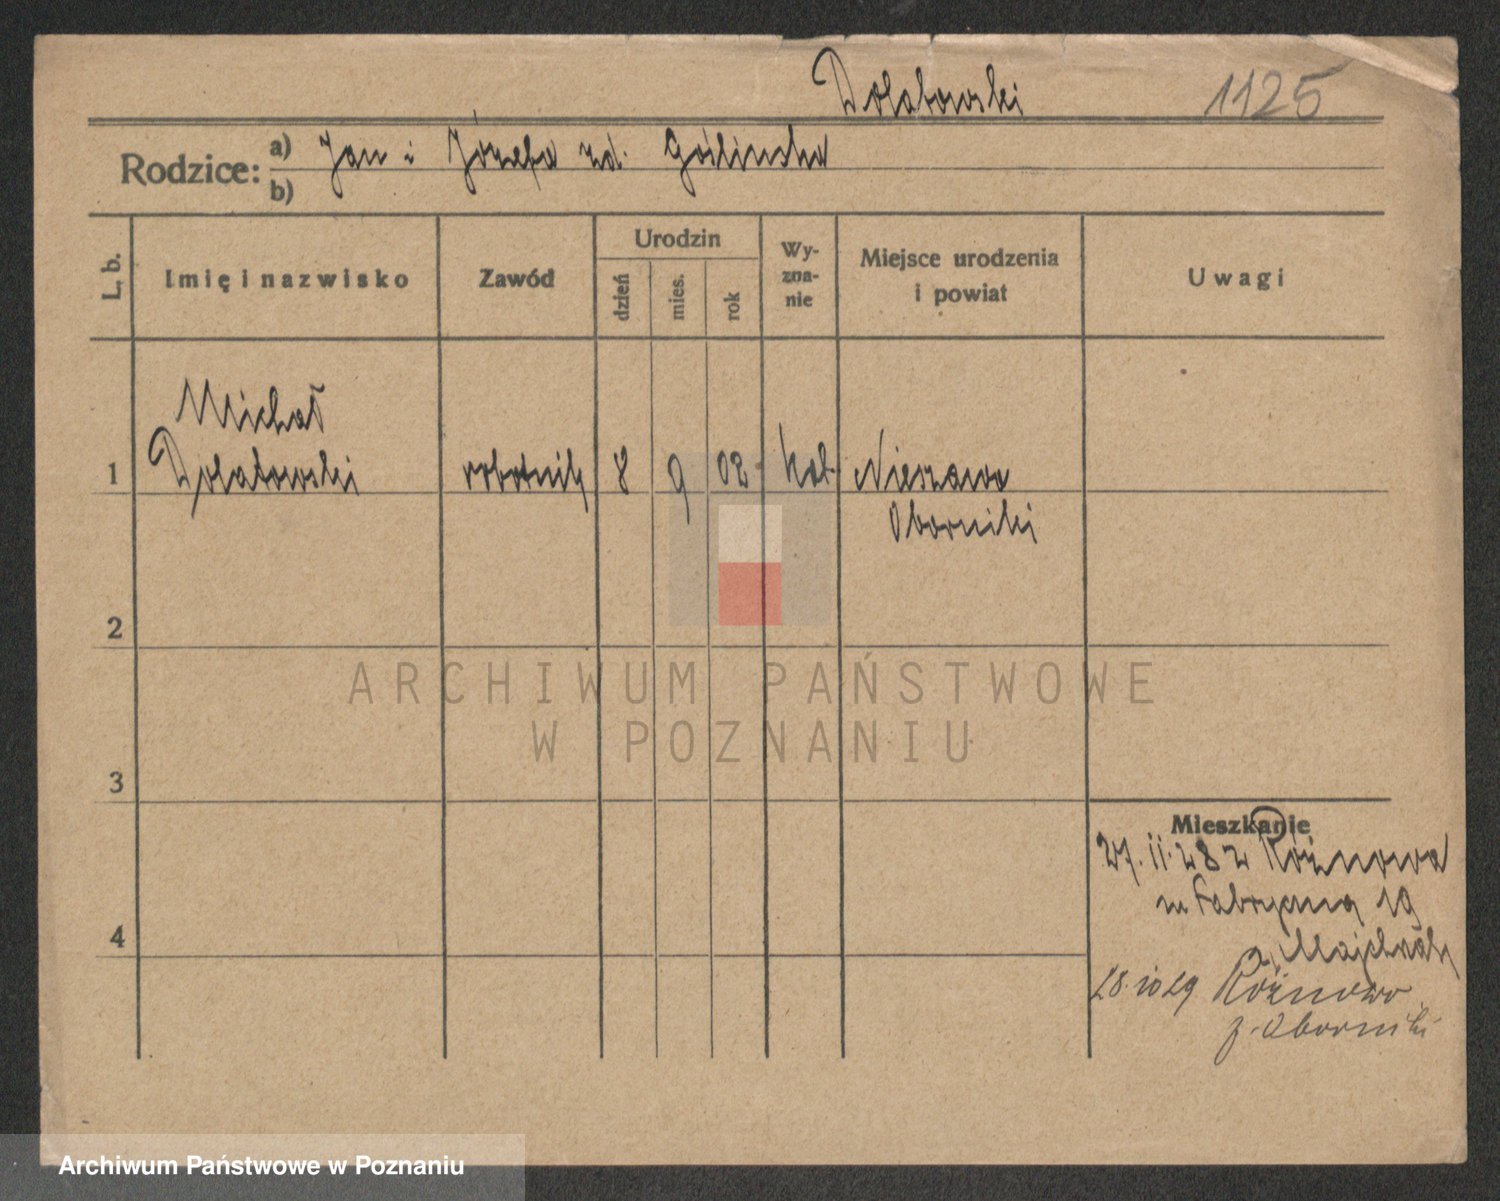 Dolatowski 1125
Rodzice: a) Jan i Józefa zd. Goślinska
b)
L. b.
Imię i nazwisko
Zawód
Urodzin
dzień
mies.
rok
Wy-
zna-
nie
Miejsce urodzenia
i powiat
Uwagi
Michał
1 Dolatowski robotnik 8 9 02 kat. Nieszawa
Oborniki
2
3
4
Mieszkanie
27. 11. 28 z Różnowa
Fabryczna 19
28. 10 29 Różnowo
p. Oborniki
ARCHIWUM PAŃSTWOWE
W POZNANIU
Archiwum Państwowe w Poznaniu